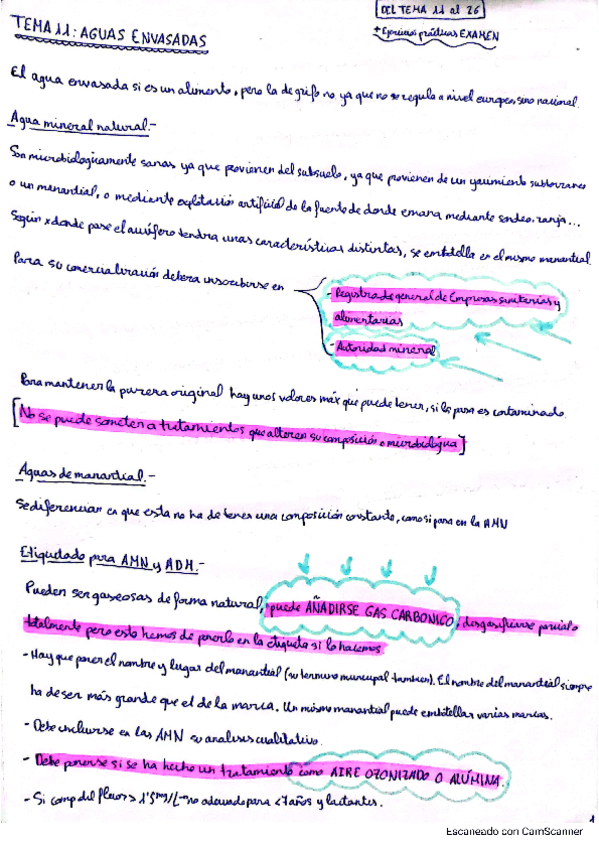 DEL TEMA 11 al 26
+ Ejercicios prácticos EXAMEN
TEMA 11: AGUAS ENVASADAS
El agua envasada si es un alimento, pero la de grifo no ya que no se regula a nivel europeo, sino nacional.
Agua mineral natural.-
Son microbiologicamente sanas ya que provienen del subsuelo, ya que provienen de un yacimiento subterraneo
o un manantial, o mediante explotación artificial de la fuente de donde emana mediante sondeo, zanja...
Según x donde pase el acuífero tendra unas características distintas, se embotella en el mismo manantial.
Para su comercialización debera inscribirse en
- Registro general de Empresas sanitarias y
alimentarias
- Autoridad mineral
Para mantener la pureza original hay unos valores máx que puede tener, si lo pasa es contaminado.
[No se puede someter a tratamientos que alteren su composición o microbiologia]
Aguas de manantial.-
Se diferencian en que esta no ha de tener una composición constante, como si pasa en la AMN
Etiquetado para AMN y ADM.-
Pueden ser gaseosas de forma natural, puede AÑADIRSE GAS CARBONICO, desgasificarse parcial o
totalmente pero esto hemos de ponerlo en la etiqueta si lo hacemos.
- Hay que poner el nombre y lugar del manantial (su termino municipal tambien). El nombre del manantial siempre
ha de ser más grande que el de la marca. Un mismo manantial puede embotellar varias marcas.
- Debe incluirse en las AMN su analisis cualitativo.
- Debe ponerse si se ha hecho un tratamiento como AIRE OZONIZADO O ALÚMINA.
- Si comp del fluor > 1'5 mg/L → no adecuado para < 7 años y lactantes.
1
Escaneado con CamScanner